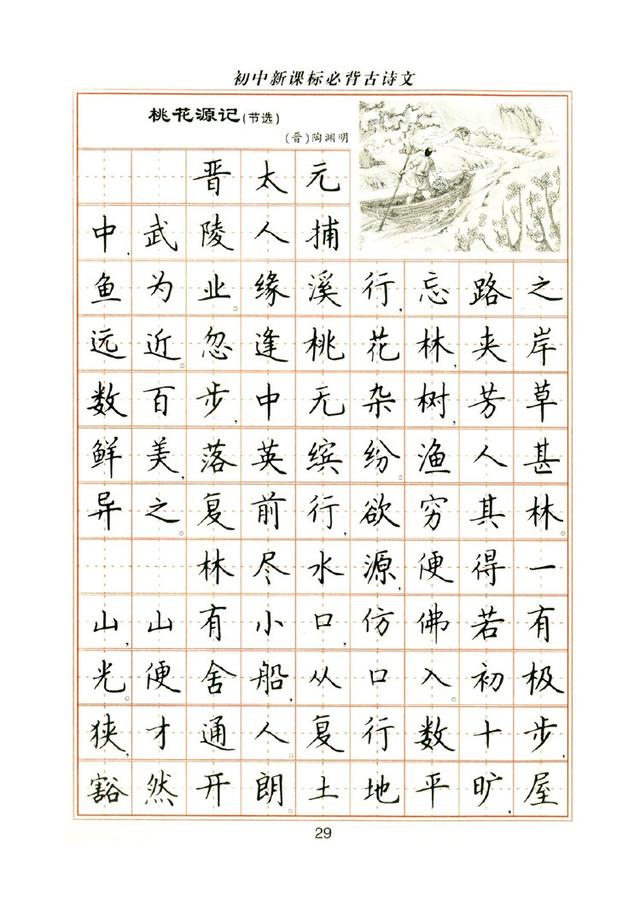 初中新课标必背古诗文
桃花源记(节选)
(晋)陶渊明
晋太元
中,武陵人捕
鱼为业。缘溪行,忘路之
远近。忽逢桃花林,夹岸
数百步,中无杂树,芳草
鲜美,落英缤纷。渔人甚
异之。复前行,欲穷其林。
林尽水源,便得一
山,山有小口,仿佛若有
光。便舍船,从口入。初极
狭,才通人。复行数十步,
豁然开朗。土地平旷,屋
29